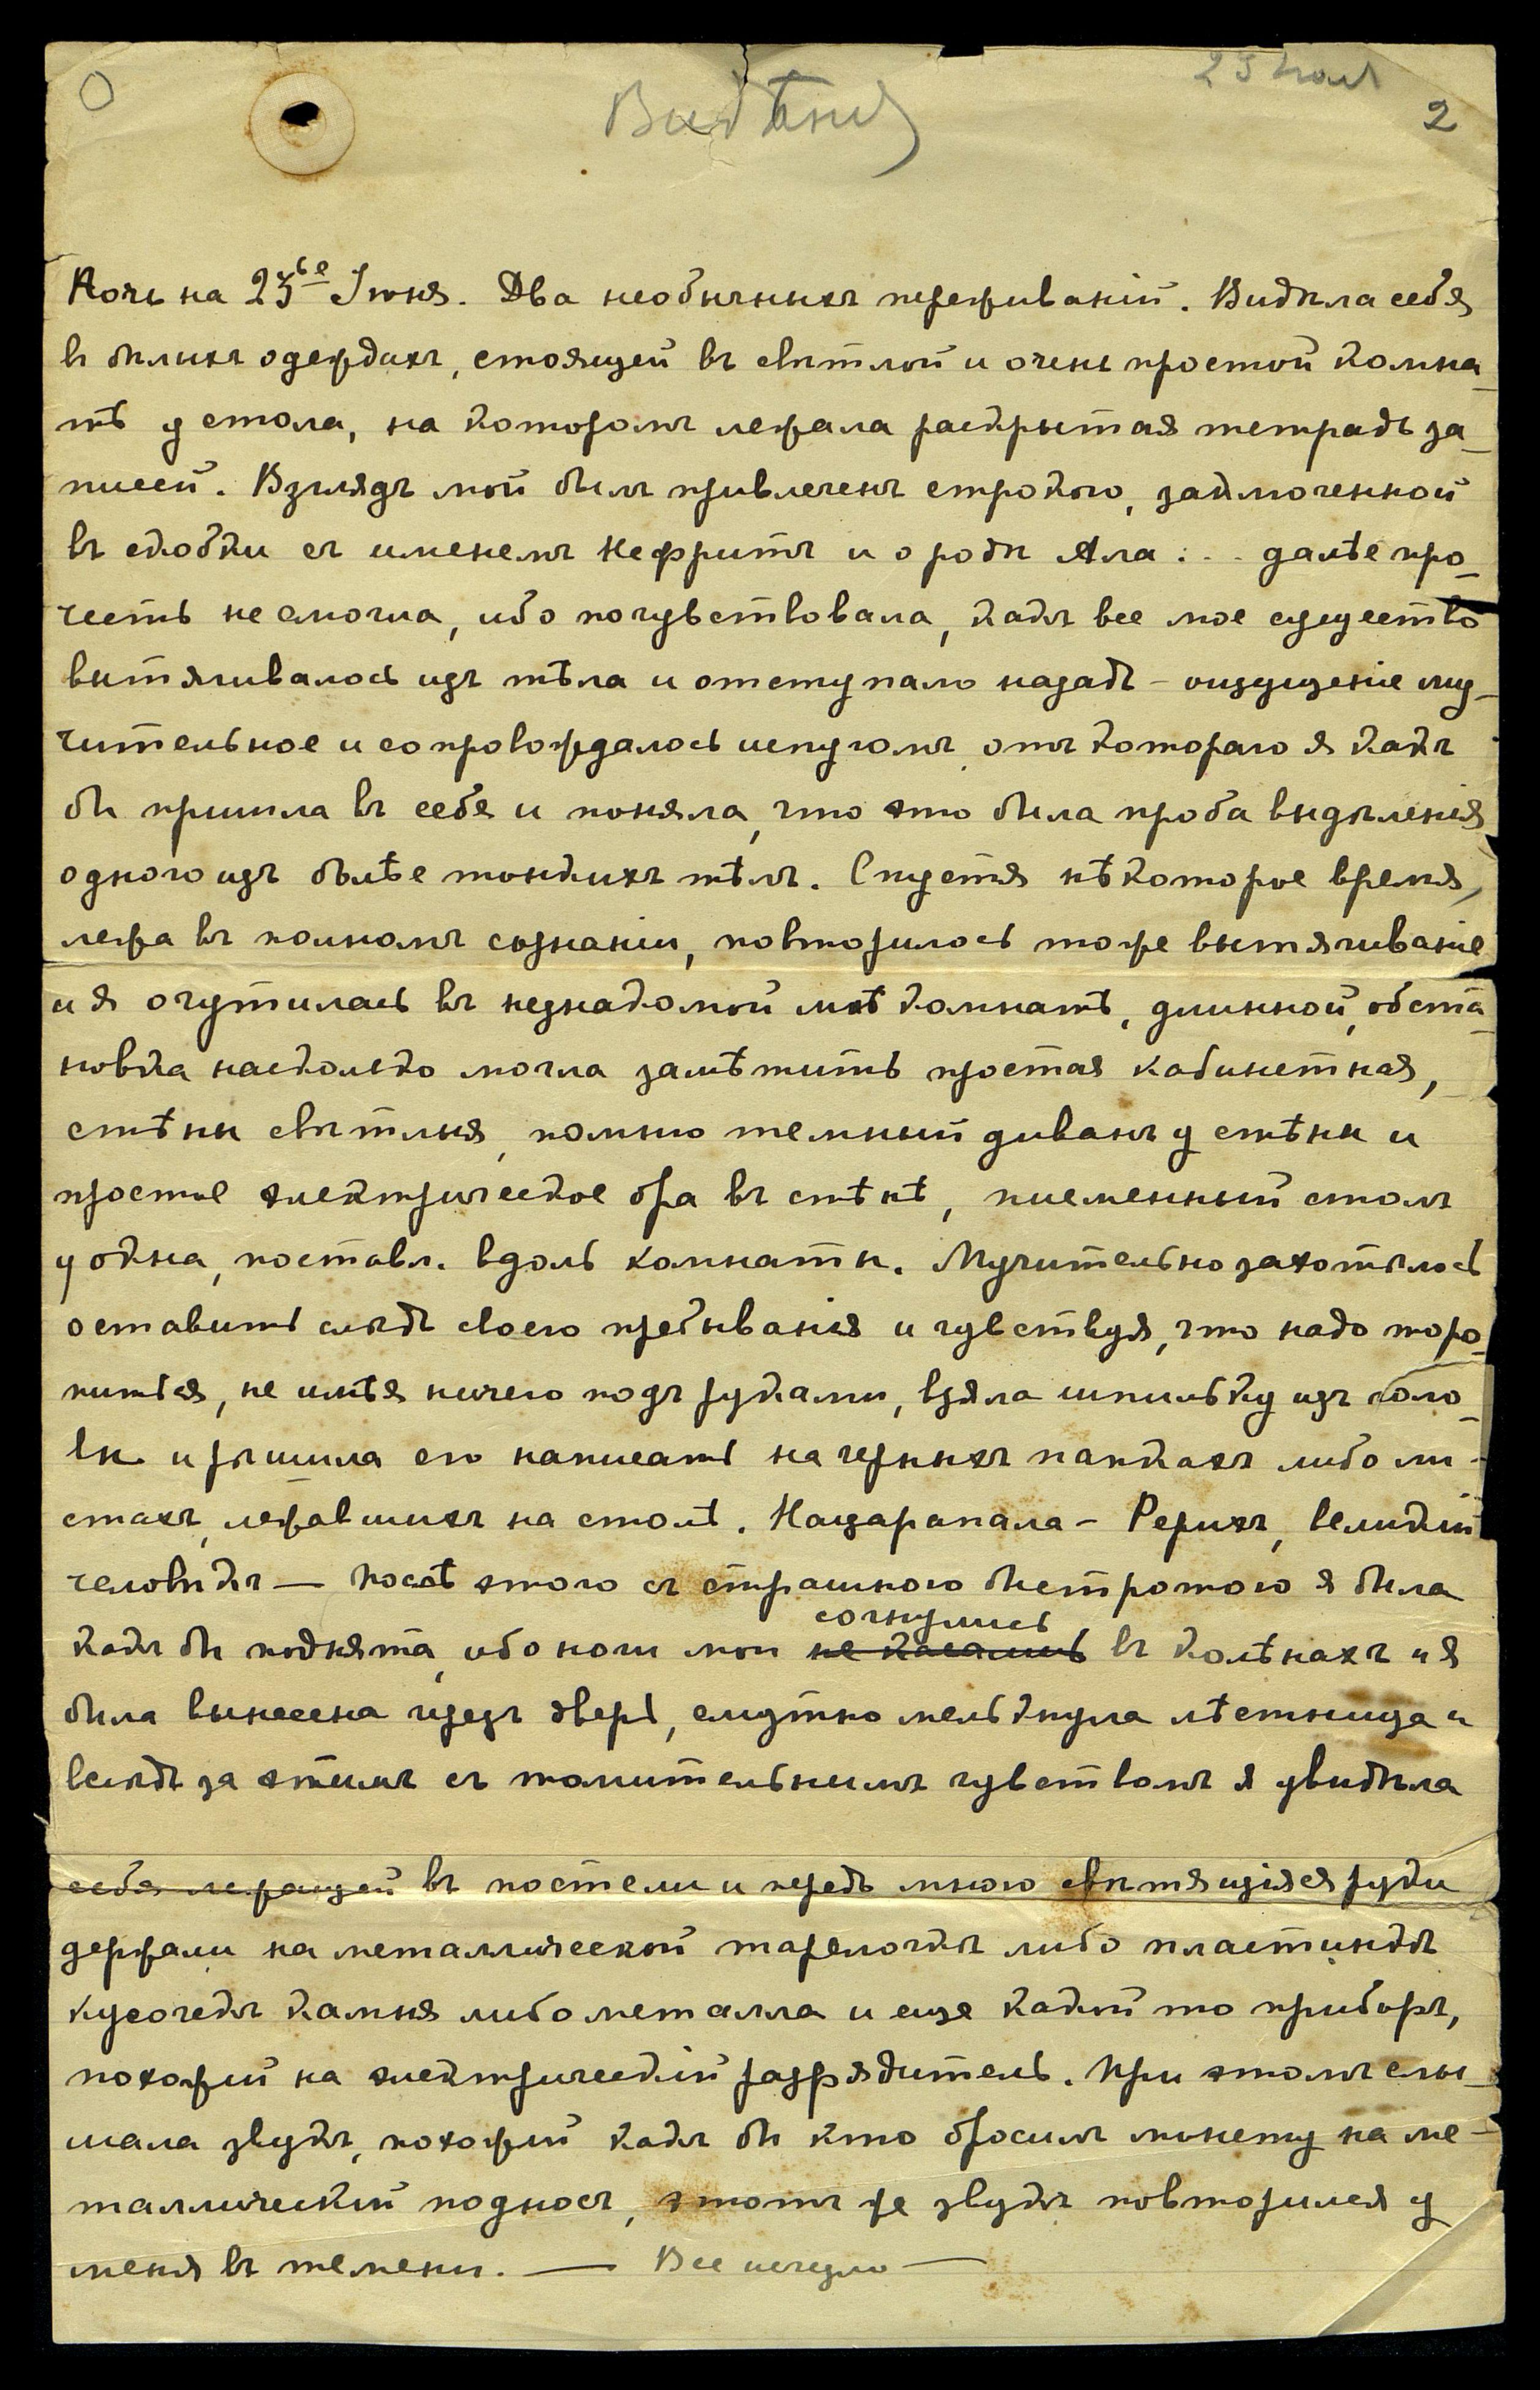 Видѣнія
2
Ночь на 23ье Іюня. Два необычныхъ переживаній. Видѣла себя
въ бѣлыхъ одеждахъ, стоящей въ свѣтлой и очень простой комна-
тѣ у стола, на которомъ лежала раскрытая тетрадь за-
писей. Взглядъ мой былъ привлеченъ строкою, заключенной
въ скобки съ именемъ Нефритъ и о родѣ Ала... далѣе про-
честь не смогла, ибо почувствовала, какъ все мое существо
вытягивалось изъ тѣла и отступало назадъ – ощущеніе му-
чительное и сопровождалось испугомъ, отъ котораго я какъ
бы пришла въ себя и поняла, что это была проба выдѣленія
одного изъ болѣе тонкихъ тѣлъ. Спустя нѣкоторое время,
лежа въ полномъ сознаніи, повторилось тоже вытягиваніе
и я очутилась въ незнакомой мнѣ комнатѣ, длинной, обста-
новка насколько могла замѣтить простая кабинетная,
стѣны свѣтлыя, помню темный диванъ у стѣны и
простые электрическое бра въ стѣнѣ, письменный столъ
у окна, поставл. вдоль комнаты. Мучительно захотѣлось
оставить слѣдъ своего пребыванія и чувствуя, что надо торо-
питься, не имѣя ничего подъ руками, взяла шпильку изъ голо-
вы и рѣшила ею написать на черныхъ папкахъ либо ли-
стахъ, лежавшихъ на столѣ. Нацарапала – Рерихъ, великій
человѣкъ — Послѣ этого съ страшною быстротою я была
согнулись
какъ бы поднята, ибо ноги мои не касались въ колѣнахъ и я
была вынесена через дверь, смутно мелькнула лѣстница и
вслѣдъ за этимъ съ томительнымъ чувствомъ я увидѣла
себя лежащей въ постели и передъ мною свѣтящіяся руки
держали на металлической тарелочкѣ либо пластинкѣ
кусочекъ камня либо металла и еще какой то приборъ,
похожій на электрическій разрядитель. При этомъ слы-
шала звукъ, похожій какъ бы кто бросилъ монету на ме-
таллическій подносъ, этотъ же звукъ повторился у
меня въ темени. — Все исчезло —